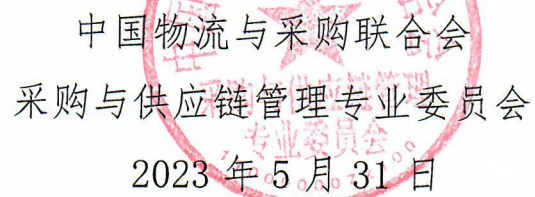 中国物流与采购联合会
采购与供应链管理专业委员会
2023 年 5 月 31 日
采购与供应链管理
专业委员会